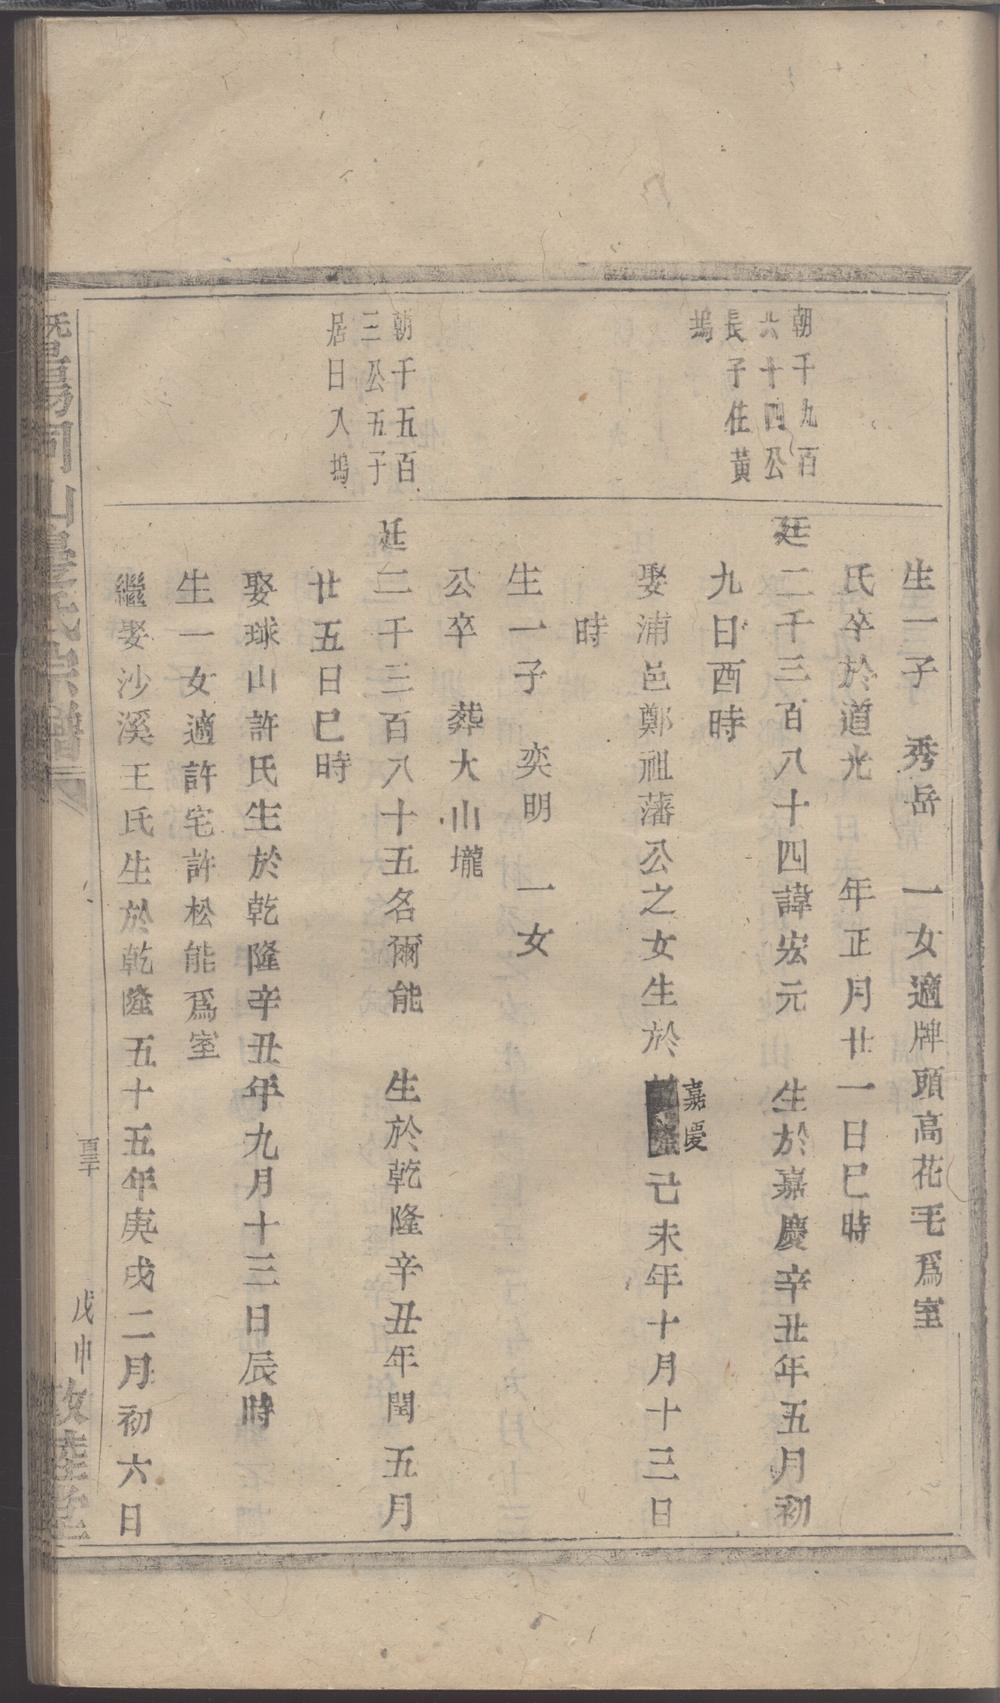 朝千九百
六十四公
長子住黃
塢
朝千五百
三公五子
居日入塢
生一子 秀岳 一女適牌頭高花毛爲室
氏卒於道光 年正月廿一日巳時
廷二千三百八十四諱宏元 生於嘉慶辛丑年五月初
九日酉時
娶浦邑鄭祖藩公之女生於嘉慶己未年十月十三日
時
生一子 奕明 一女
公卒 葬大山壠
廷二千三百八十五名爾能 生於乾隆辛丑年閏五月
廿五日巳時
娶球山許氏生於乾隆辛丑年九月十三日辰時
生一女適許宅許松能爲室
繼娶沙溪王氏生於乾隆五十五年庚戌二月初六日
宗譜
戊申 敦睦堂